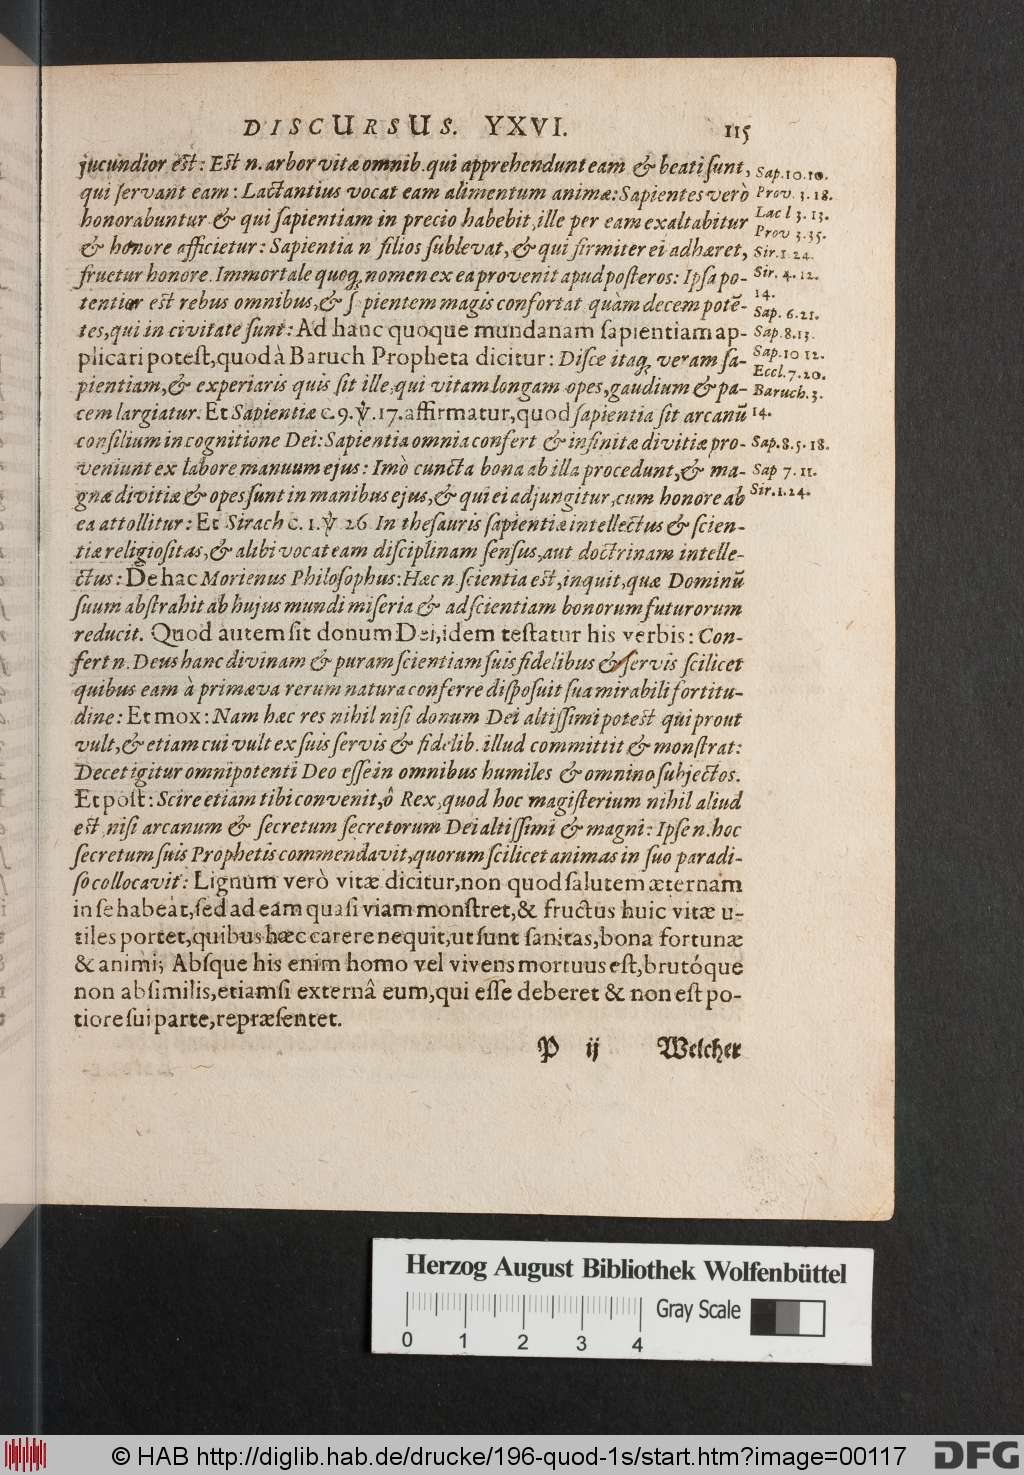 DISCURSUS. YXVI. 115
jucundior est: Est n. arbor vitæ omnib. qui apprehendunt eam & beati sunt,
qui servant eam: Lactantius vocat eam alimentum animæ: Sapientes verò
honorabuntur & qui sapientiam in precio habebit, ille per eam exaltabitur
& honore afficietur: Sapientia n filios sublevat, & qui firmiter ei adhæret,
fruetur honore. Immortale quoq; nomen ex ea provenit apud posteros: Ipsa po-
tentior est rebus omnibus, & s pientem magis confortat quàm decem potẽ-
tes, qui in civitate sunt: Ad hanc quoque mundanam sapientiam ap-
plicari potest, quod à Baruch Propheta dicitur: Disce itaq; veram sa-
pientiam, & experiaris quis sit ille, qui vitam longam opes, gaudium & pa-
cem largiatur. Et Sapientiæ c. 9. ℣. 17. affirmatur, quod sapientia sit arcanũ
consilium in cognitione Dei: Sapientia omnia confert & infinitæ divitiæ pro-
veniunt ex labore manuum ejus: Imò cuncta bona ab illa procedunt, & ma-
gnæ divitiæ & opes sunt in manibus ejus, & qui ei adjungitur, cum honore ab
ea attollitur: Et Sirach c. 1. ℣ 26 In thesauris sapientiæ intellectus & scien-
tiæ religiositas, & alibi vocat eam disciplinam sensus, aut doctrinam intelle-
ctus: De hac Morienus Philosophus: Hæc n. scientia est, inquit, quæ Dominũ
suum abstrahit ab hujus mundi miseria & ad scientiam bonorum futurorum
reducit. Quod autem sit donum Dei, idem testatur his verbis: Con-
fert n. Deus hanc divinam & puram scientiam suis fidelibus & servis scilicet
quibus eam à primæva rerum natura conferre disposuit sua mirabili fortitu-
dine: Et mox: Nam hæc res nihil nisi donum Dei altissimi potest qui prout
vult, & etiam cui vult ex suis servis & fidelib. illud committit & monstrat:
Decet igitur omnipotenti Deo esse in omnibus humiles & omnino subjectos.
Et post: Scire etiam tibi convenit, ô Rex, quod hoc magisterium nihil aliud
est nisi arcanum & secretum secretorum Dei altissimi & magni: Ipse n. hoc
secretum suis Prophetis commendavit, quorum scilicet animas in suo paradi-
so collocavit: Lignum verò vitæ dicitur, non quod salutem æternam
in se habeat, sed ad eam quasi viam monstret, & fructus huic vitæ u-
tiles portet, quibus hæc carere nequit, ut sunt sanitas, bona fortunæ
& animi; Absque his enim homo vel vivens mortuus est, brutóque
non absimilis, etiamsi externâ eum, qui esse deberet & non est po-
tiore sui parte, repræsentet.
P ij Welcher
Sap. 10. 10.
Prov. 3. 18.
Lac l 3. 13.
Prov 3. 35.
Sir. 1. 24.
Sir. 4. 12.
14.
Sap. 6. 21.
Sap. 8. 13.
Sap. 10 12.
Eccl. 7. 20.
Baruch. 3.
14.
Sap. 8. 5. 18.
Sap 7. 11.
Sir. 1. 24.
Herzog August Bibliothek Wolfenbüttel
Gray Scale
0 1 2 3 4
© HAB http://diglib.hab.de/drucke/196-quod-1s/start.htm?image=00117
DFG